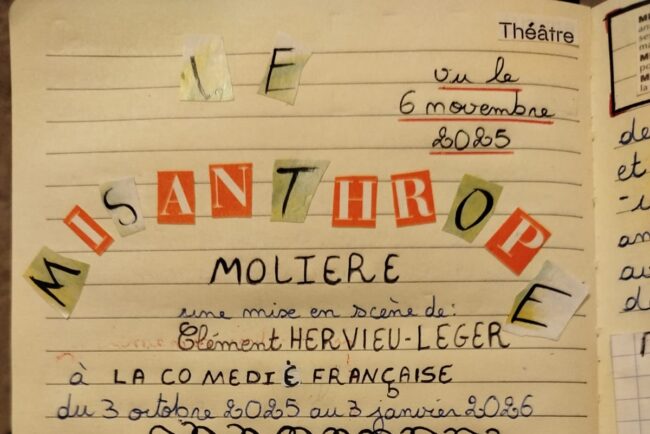 Théâtre
LE
vu le
6 novembre
2025
MISANTHROPE
MOLIERE
une mise en scène de:
Clément HERVIEU-LEGER
à LA COMEDIE FRANÇAISE
du 3 octobre 2025 au 3 janvier 2026
de
et